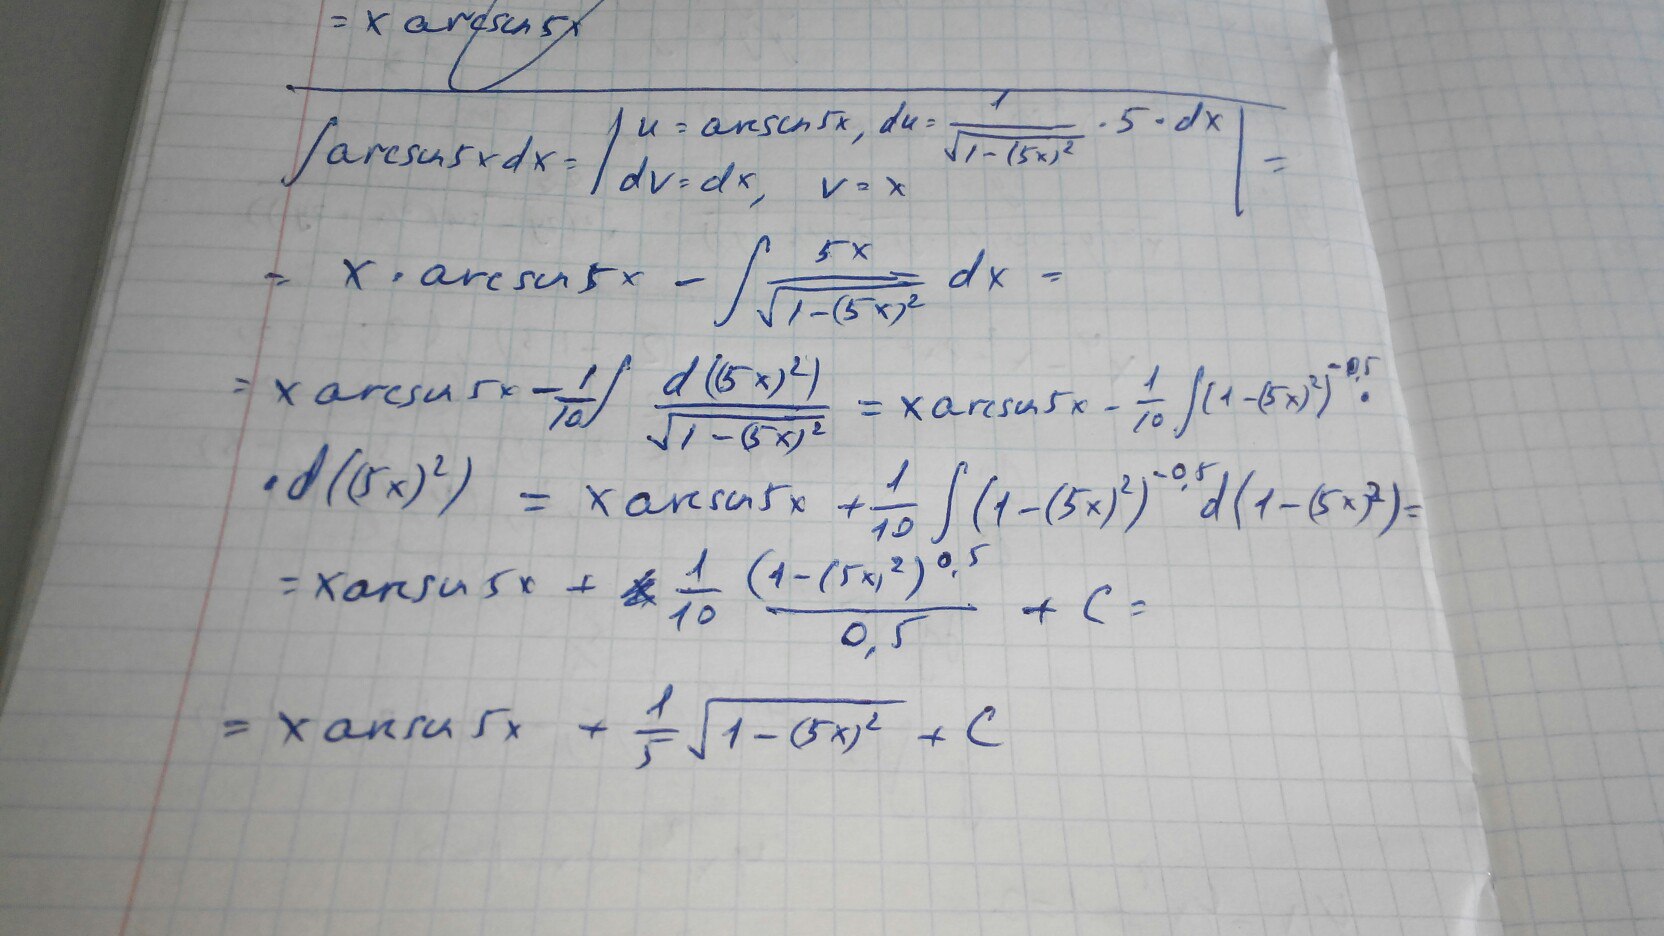 = x arcsin 5x
∫ arcsin 5x dx = | u = arcsin 5x, du = 1/√(1-(5x)²) · 5 · dx | =
dv = dx, v = x
= x · arcsin 5x - ∫ 5x/√(1-(5x)²) dx =
= x arcsin 5x - 1/10 ∫ d((5x)²)/√(1-(5x)²) = x arcsin 5x - 1/10 ∫ (1-(5x)²)^(-0,5) ·
· d((5x)²) = x arcsin 5x + 1/10 ∫ (1-(5x)²)^(-0,5) d(1-(5x)²) =
= x arcsin 5x + 1/10 (1-(5x)²)^(0,5)/0,5 + C =
= x arcsin 5x + 1/5 √(1-(5x)²) + C